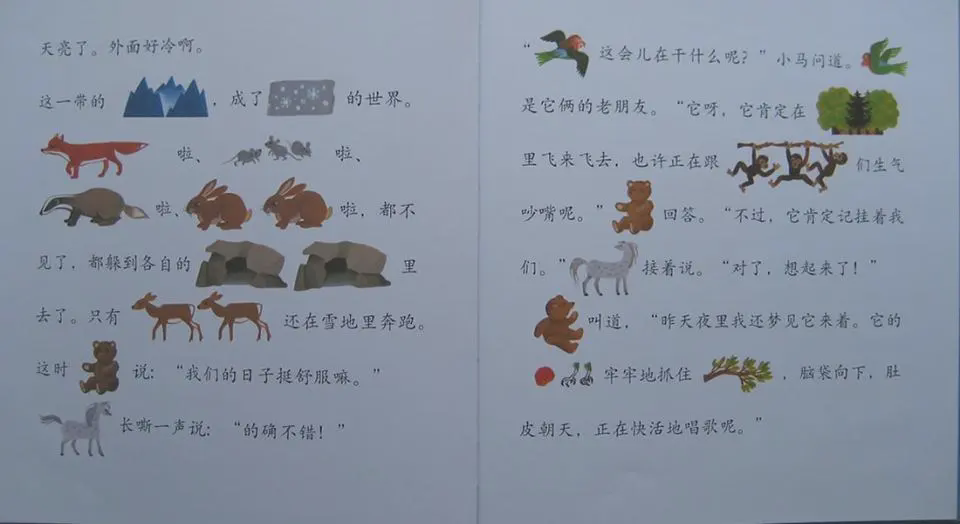 天亮了。外面好冷啊。
这一带的，成了的世界。
啦、啦、
啦、啦，都不
见了，都躲到各自的里
去了。只有还在雪地里奔跑。
这时说：“我们的日子挺舒服嘛。”
长嘶一声说：“的确不错！”
“这会儿在干什么呢？”小马问道。
是它俩的老朋友。“它呀，它肯定在
里飞来飞去，也许正在跟们生气
吵嘴呢。”回答。“不过，它肯定记挂着我
们。”接着说。“对了，想起来了！”
叫道，“昨天夜里我还梦见它来着。它的
牢牢地抓住，脑袋向下，肚
皮朝天，正在快活地唱歌呢。”